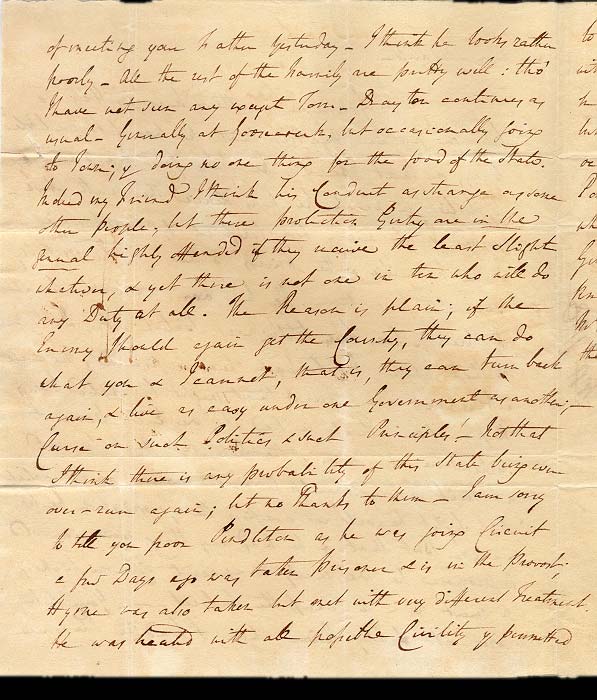 of meeting your Father Yesterday – I think he looks rather
poorly – All the rest of the Family are pretty well: tho'
I have not seen any except Tom – Drayton continues as
usual – Generally at Goosecreek, but occasionally going
to Town; & doing no one thing for the good of the State.
Indeed my Friend I think his Conduct as strange as some
other People, but these protection Gentry are in the
general highly offended if they receive the least Slight
whatever, & yet there is not one in ten who will do
any Duty at all. The Reason is plain; if the
Enemy should again get the Country, they can do
what you & I cannot, that is, they can turn back
again, & live as easy under one Government as another; –
Curse on such Politics & such Principles! – Not that
I think there is any probability of this State being
over-run again; but no Thanks to them – I am sorry
to tell you poor Pendleton as he was going Circuit
a few Days ago was taken Prisoner & is in the Provost;
Hyrne was also taken but met with very different Treatment.
He was treated with all possible Civility & permitted